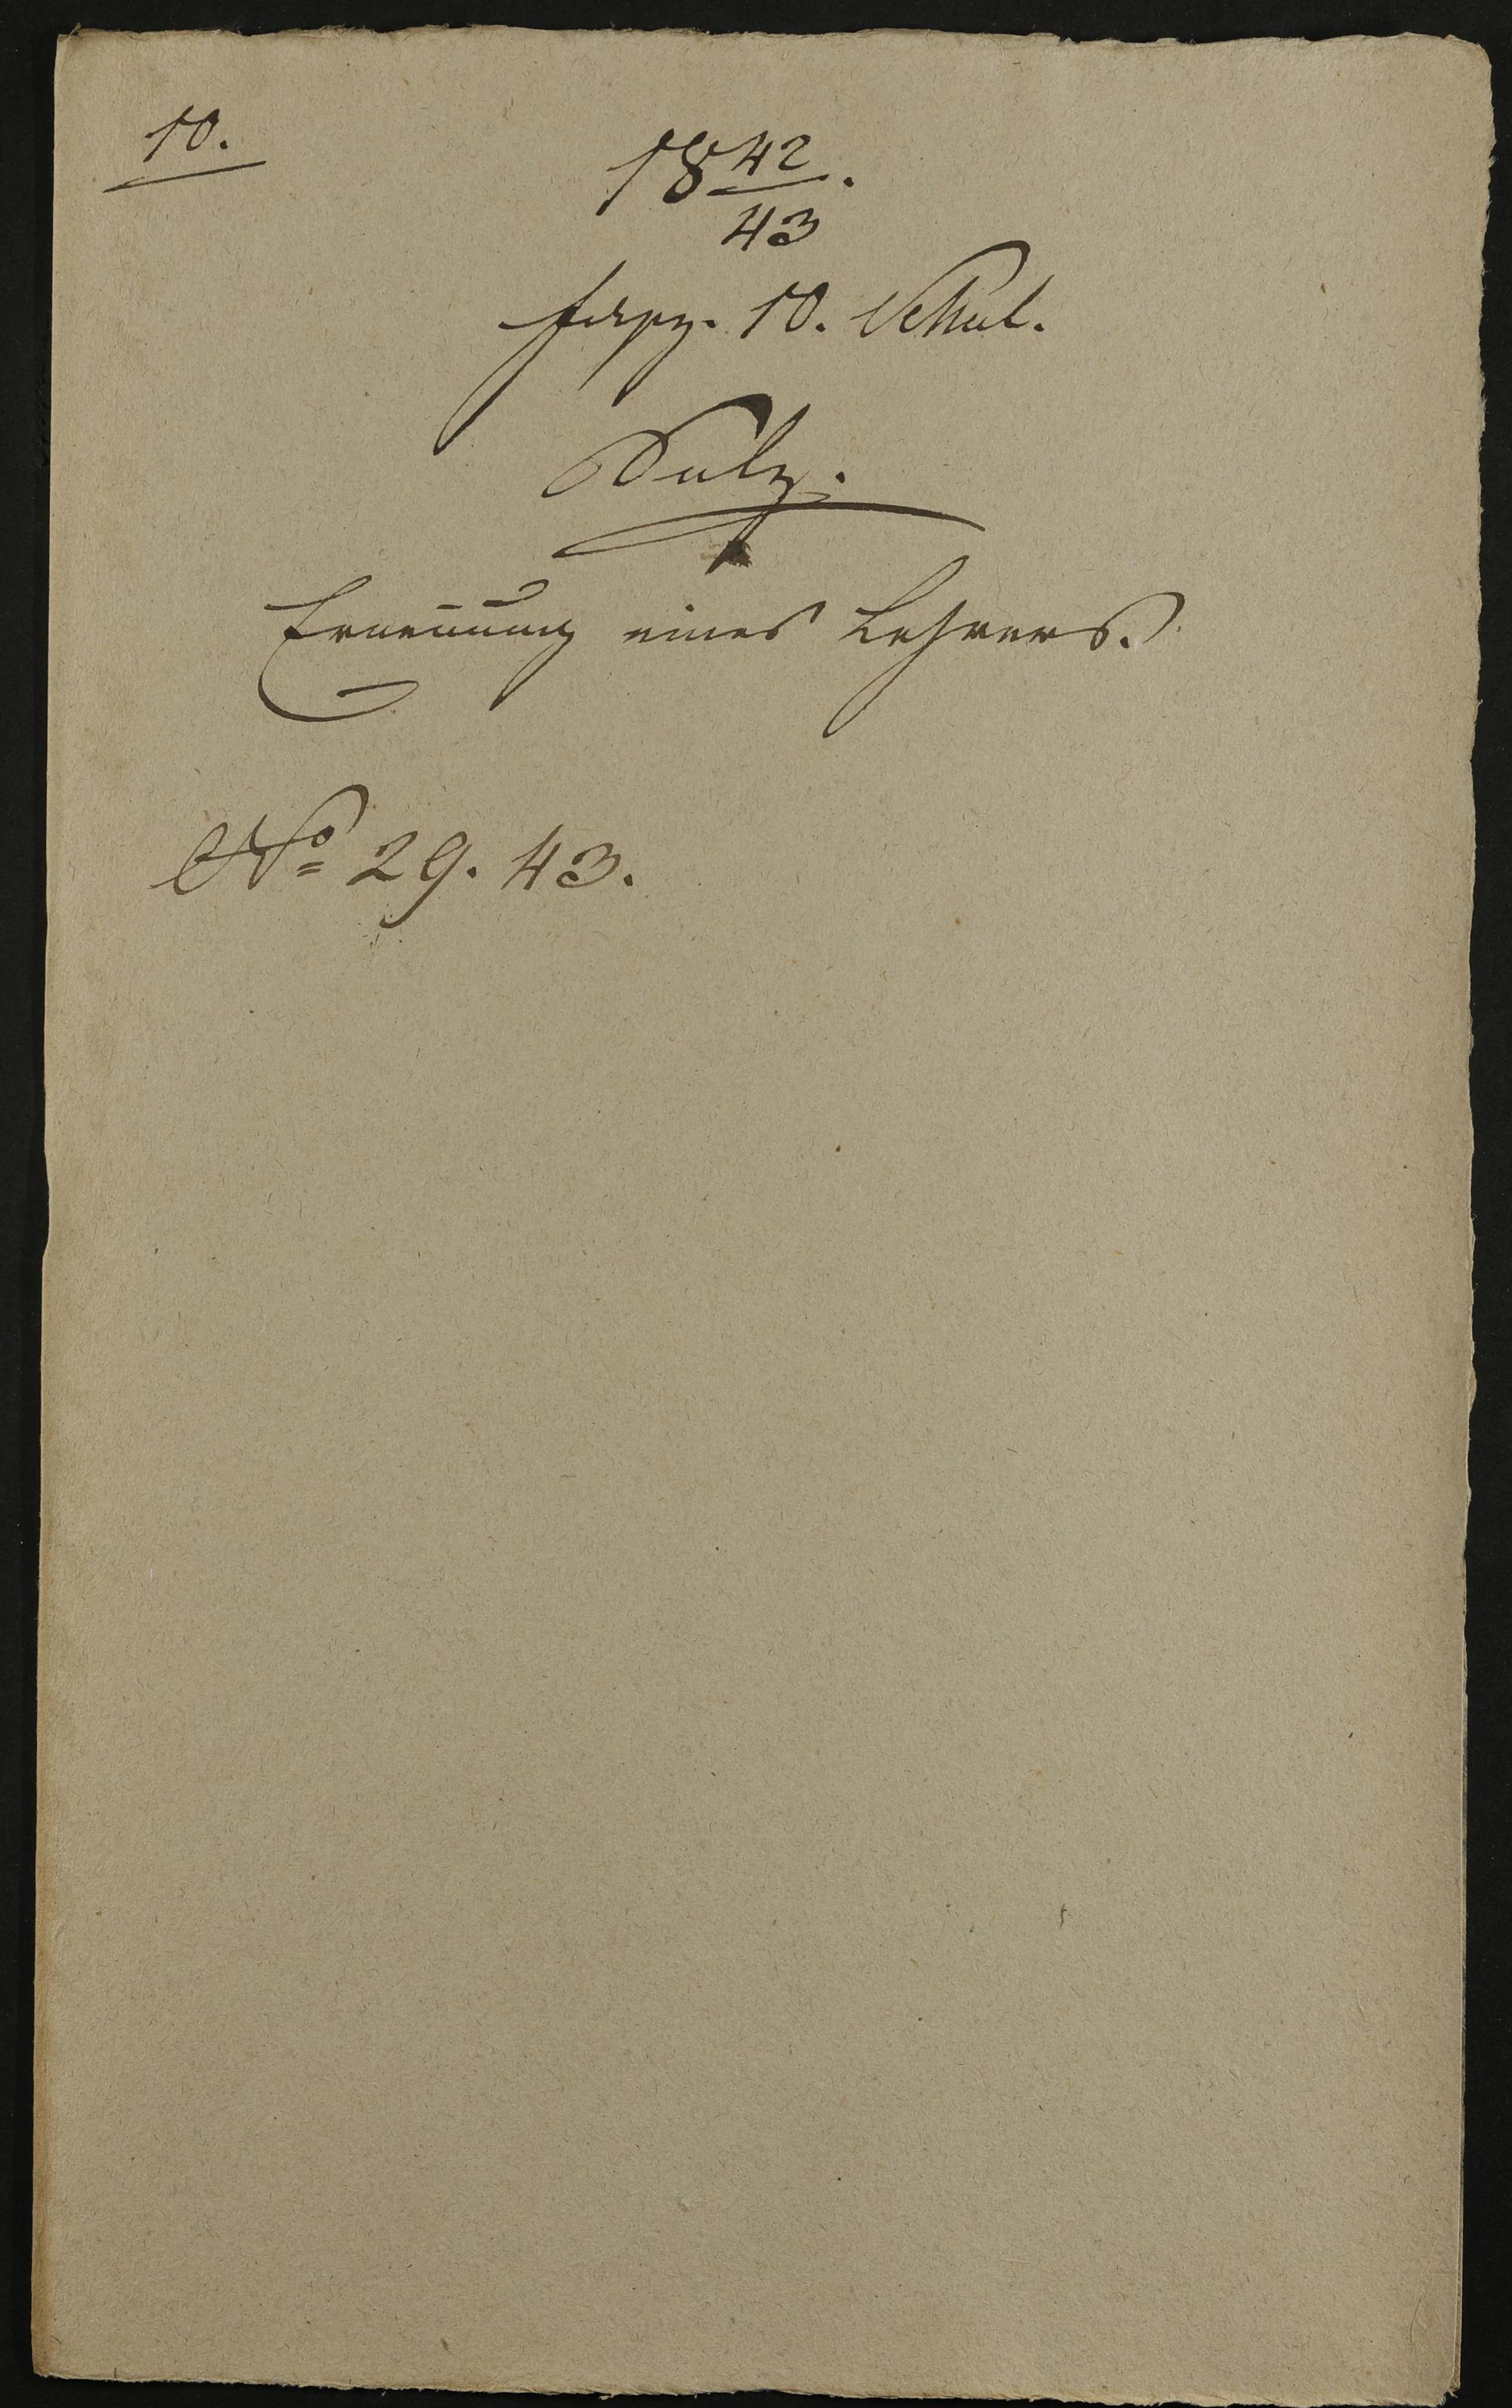 10.
18 42/43.
fasz. 10. Schul.
Sulz.
Ernennung eines Lehrers.
No 29. 43.